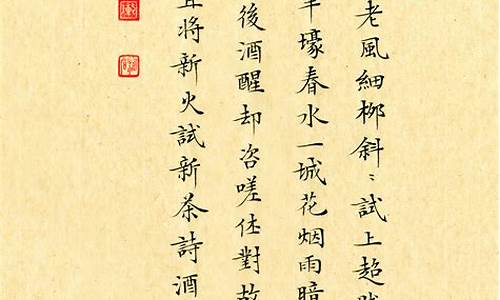 老風細栁斜〻試上超然
半壕春水一城花烟雨暗
後酒醒却咨嗟休對故
且將新火試新茶詩酒